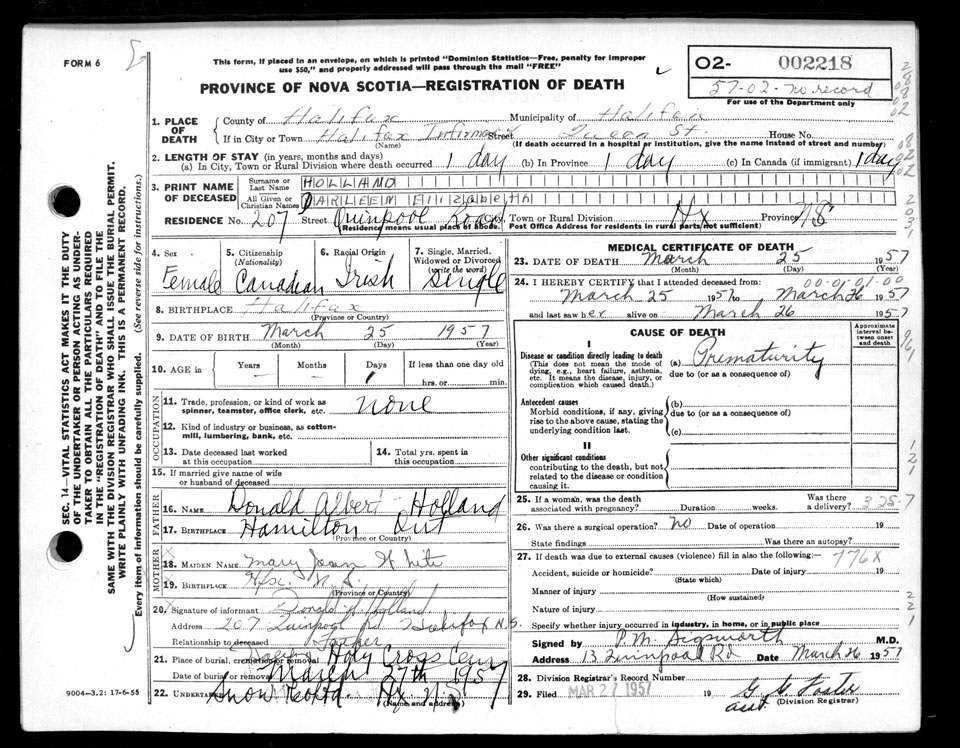 FORM 6
This form, if placed in an envelope, on which is printed "Dominion Statistics—Free, penalty for improper
use $50," and properly addressed will pass through the mail "FREE"
PROVINCE OF NOVA SCOTIA—REGISTRATION OF DEATH
02- 002218
57-02-no record
For use of the Department only
1. PLACE OF DEATH
County of Halifax Municipality of Halifax
If in City or Town Halifax Infirmary Street Queen St. House No.
(Name) (If death occurred in a hospital or institution, give the name instead of street and number)
2. LENGTH OF STAY (in years, months and days)
(a) In City, Town or Rural Division where death occurred 1 day (b) In Province 1 day (c) In Canada (if immigrant) 1 day
3. PRINT NAME OF DECEASED
Surname or Last Name HOLLAND
All Given or Christian Names DARLEEM Elizabeth
RESIDENCE No. 207 Street Quinpool Road Town or Rural Division Hx Province NS
(Residence means usual place of abode. Post Office Address for residents in rural parts not sufficient)
4. Sex Female
5. Citizenship (Nationality) Canadian
6. Racial Origin Irish
7. Single, Married, Widowed or Divorced (write the word) Single
8. BIRTHPLACE Halifax
(Province or Country)
9. DATE OF BIRTH March 25 1957
(Month) (Day) (Year)
10. AGE in Years Months Days 1 If less than one day old
hrs. or min.
OCCUPATION
11. Trade, profession, or kind of work as
spinner, teamster, office clerk, etc. none
12. Kind of industry or business, as cotton-
mill, lumbering, bank, etc.
13. Date deceased last worked
at this occupation
14. Total yrs. spent in
this occupation
15. If married give name of wife
or husband of deceased
FATHER
16. Name Donald Albert Holland
17. Birthplace Hamilton Ont
(Province or Country)
MOTHER
18. Maiden Name Mary Joan White
19. Birthplace Hfx. N.S.
(Province or Country)
20. Signature of informant Donald A. Holland
Address 207 Quinpool Rd Halifax N.S.
Relationship to deceased Father
21. Place of burial, cremation or removal Holy Cross Cem
Date of burial or removal March 27th 1957
22. Undertaker Snow Co Ltd. Hx. N.S.
(Name and address)
9004—3.2: 17-6-55
MEDICAL CERTIFICATE OF DEATH
23. DATE OF DEATH March 25 1957
(Month) (Day) (Year)
24. I HEREBY CERTIFY that I attended deceased from: 00-01-01-00
March 25 1957 to March 26 1957
and last saw her alive on March 26 1957
CAUSE OF DEATH
Approximate interval between onset and death
I
Disease or condition directly leading to death
(This does not mean the mode of
dying, e.g., heart failure, asthenia,
etc. It means the disease, injury, or
complication which caused death.)
(a) Prematurity
due to (or as a consequence of)
Antecedent causes
Morbid conditions, if any, giving
rise to the above cause, stating the
underlying condition last.
(b)
due to (or as a consequence of)
(c)
II
Other significant conditions
contributing to the death, but not
related to the disease or condition
causing it.
25. If a woman, was the death
associated with pregnancy? Duration weeks. Was there
a delivery? 325-7
26. Was there a surgical operation? no Date of operation 19
State findings Was there an autopsy?
27. If death was due to external causes (violence) fill in also the following:— 776X
Accident, suicide or homicide? Date of injury 19
(State which)
Manner of injury
(How sustained)
Nature of injury
Specify whether injury occurred in industry, in home, or in public place
Signed by P.M. Sigsworth M.D.
Address 13 Quinpool Rd Date March 26 1957
28. Division Registrar's Record Number
29. Filed MAR 27 1957 19 G. C. Foster
asst. (Division Registrar)
SEC. 14—VITAL STATISTICS ACT MAKES IT THE DUTY
OF THE UNDERTAKER OR PERSON ACTING AS UNDER-
TAKER TO OBTAIN ALL THE PARTICULARS REQUIRED
IN THE "REGISTRATION OF DEATH" AND TO FILE THE
SAME WITH THE DIVISION REGISTRAR WHO SHALL ISSUE THE BURIAL PERMIT.
WRITE PLAINLY WITH UNFADING INK. THIS IS A PERMANENT RECORD.
Every item of information should be carefully supplied. (See reverse side for instructions.)